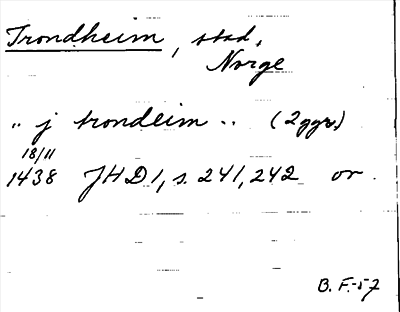 Trondheim, stad,
Norge
.. j trondeim .. (2ggr.)
18/11
1438 JHD1, s. 241, 242 or.
B. F.-57